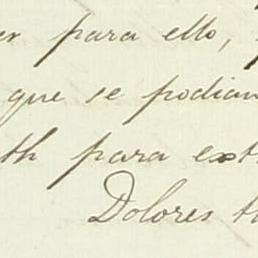 para ello,
que se podian
th para ext
Dolores